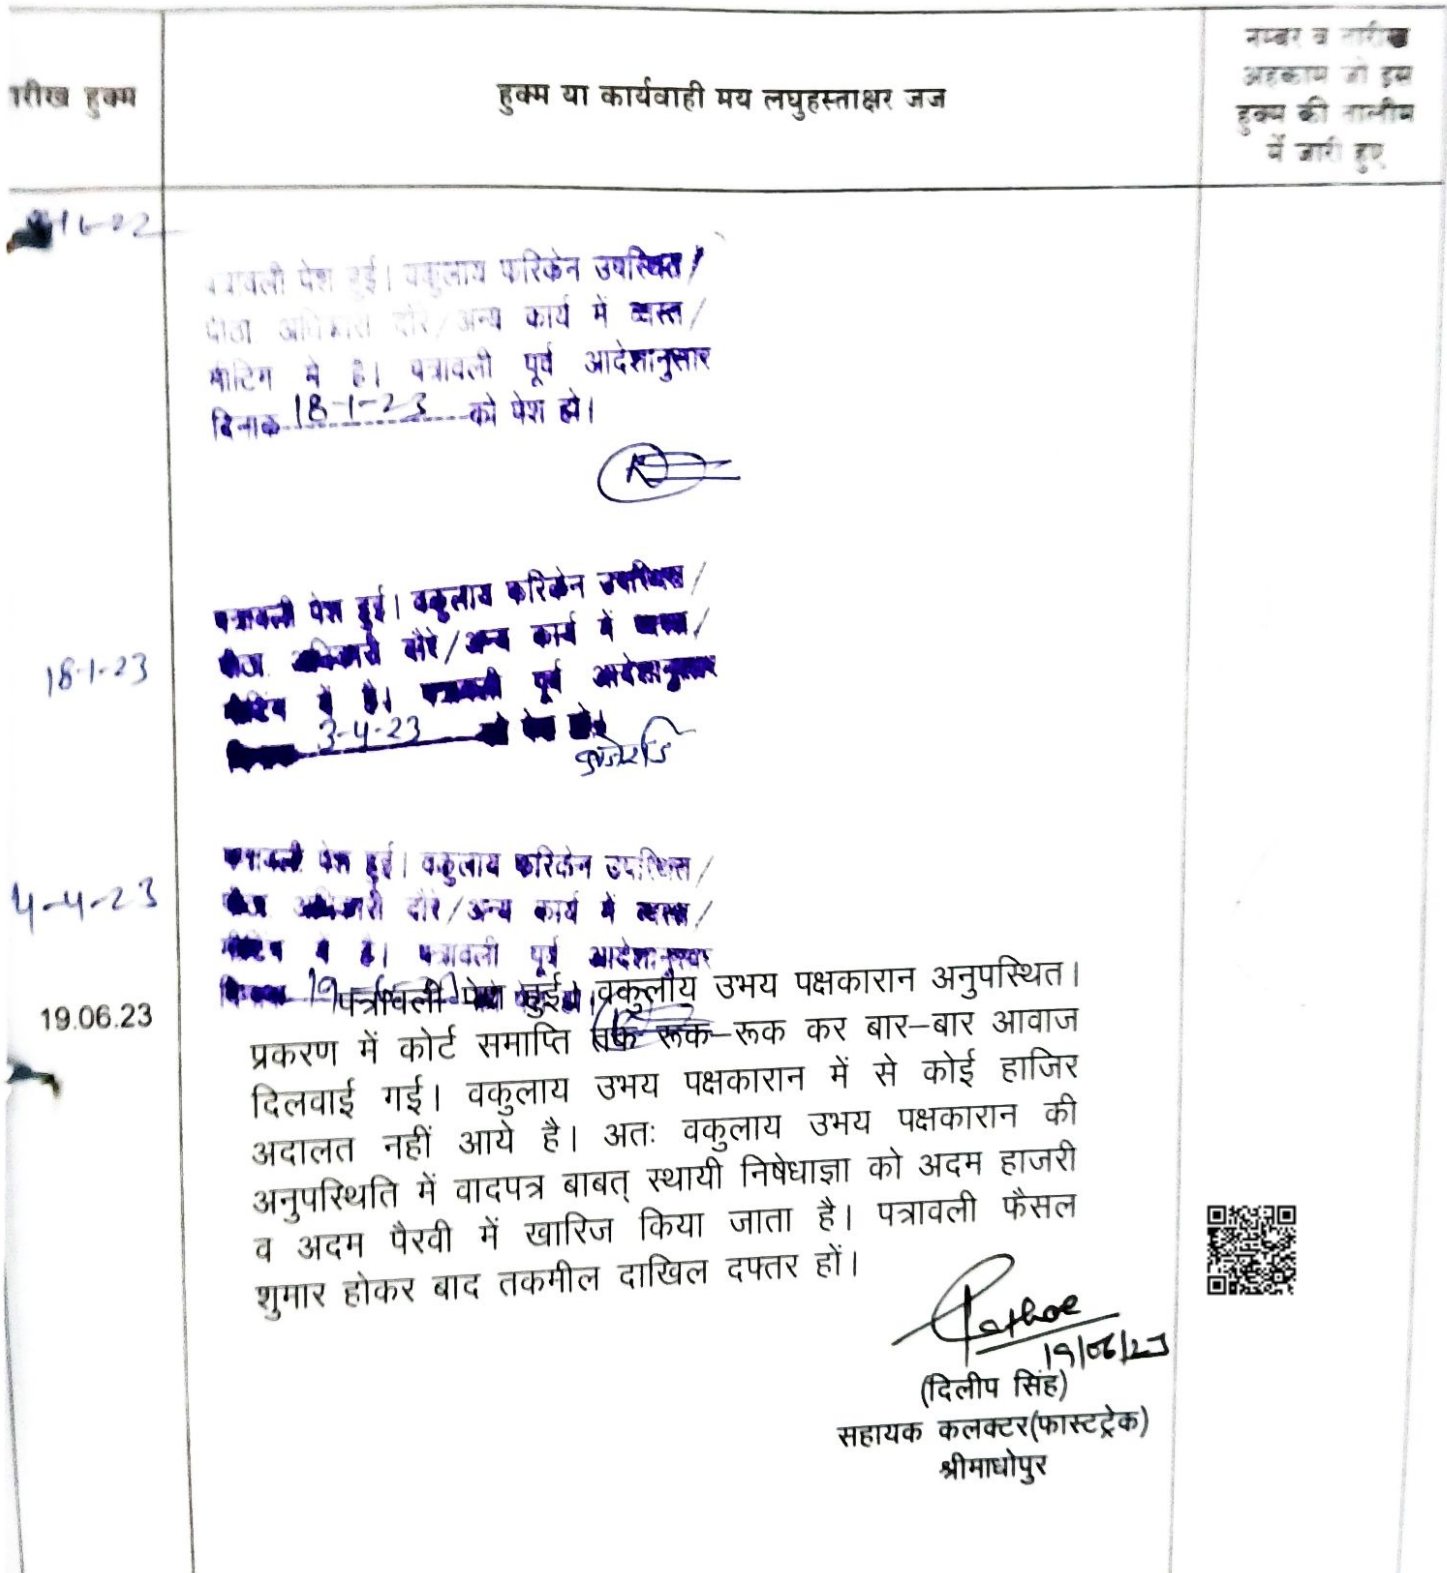 रीख हुक्म
हुक्म या कार्यवाही मय लघुहस्ताक्षर जज
नम्बर व तारीख
अहकाम जो इस
हुक्म की तालीम
में जारी हुए
पत्रावली पेश हुई। वकुलाय फरिकेन उपस्थित/
पीठा अधिकारी दौरे/अन्य कार्य में व्यस्त/
मीटिंग मे है। पत्रावली पूर्व आदेशानुसार
दिनाक 18-1-23 को पेश हो।
18-1-23
पत्रावली पेश हुई। वकुलाय फरिकेन उपस्थित/
पीठा अधिकारी दौरे/अन्य कार्य में व्यस्त/
मीटिंग में है। पत्रावली पूर्व आदेशानुसार
दिनाक 3-4-23 को पेश हो।
4-4-23
पत्रावली पेश हुई। वकुलाय फरिकेन उपस्थित/
पीठा अधिकारी दौरे/अन्य कार्य में व्यस्त/
मीटिंग में है। पत्रावली पूर्व आदेशानुसार
19.06.23
पत्रावली पेश हुई। वकुलाय उभय पक्षकारान अनुपस्थित।
प्रकरण में कोर्ट समाप्ति तक रूक-रूक कर बार-बार आवाज
दिलवाई गई। वकुलाय उभय पक्षकारान में से कोई हाजिर
अदालत नहीं आये है। अतः वकुलाय उभय पक्षकारान की
अनुपस्थिति में वादपत्र बाबत् स्थायी निषेधाज्ञा को अदम हाजरी
व अदम पैरवी में खारिज किया जाता है। पत्रावली फैसल
शुमार होकर बाद तकमील दाखिल दफ्तर हों।
19/06/23
(दिलीप सिंह)
सहायक कलक्टर(फास्टट्रेक)
श्रीमाधोपुर